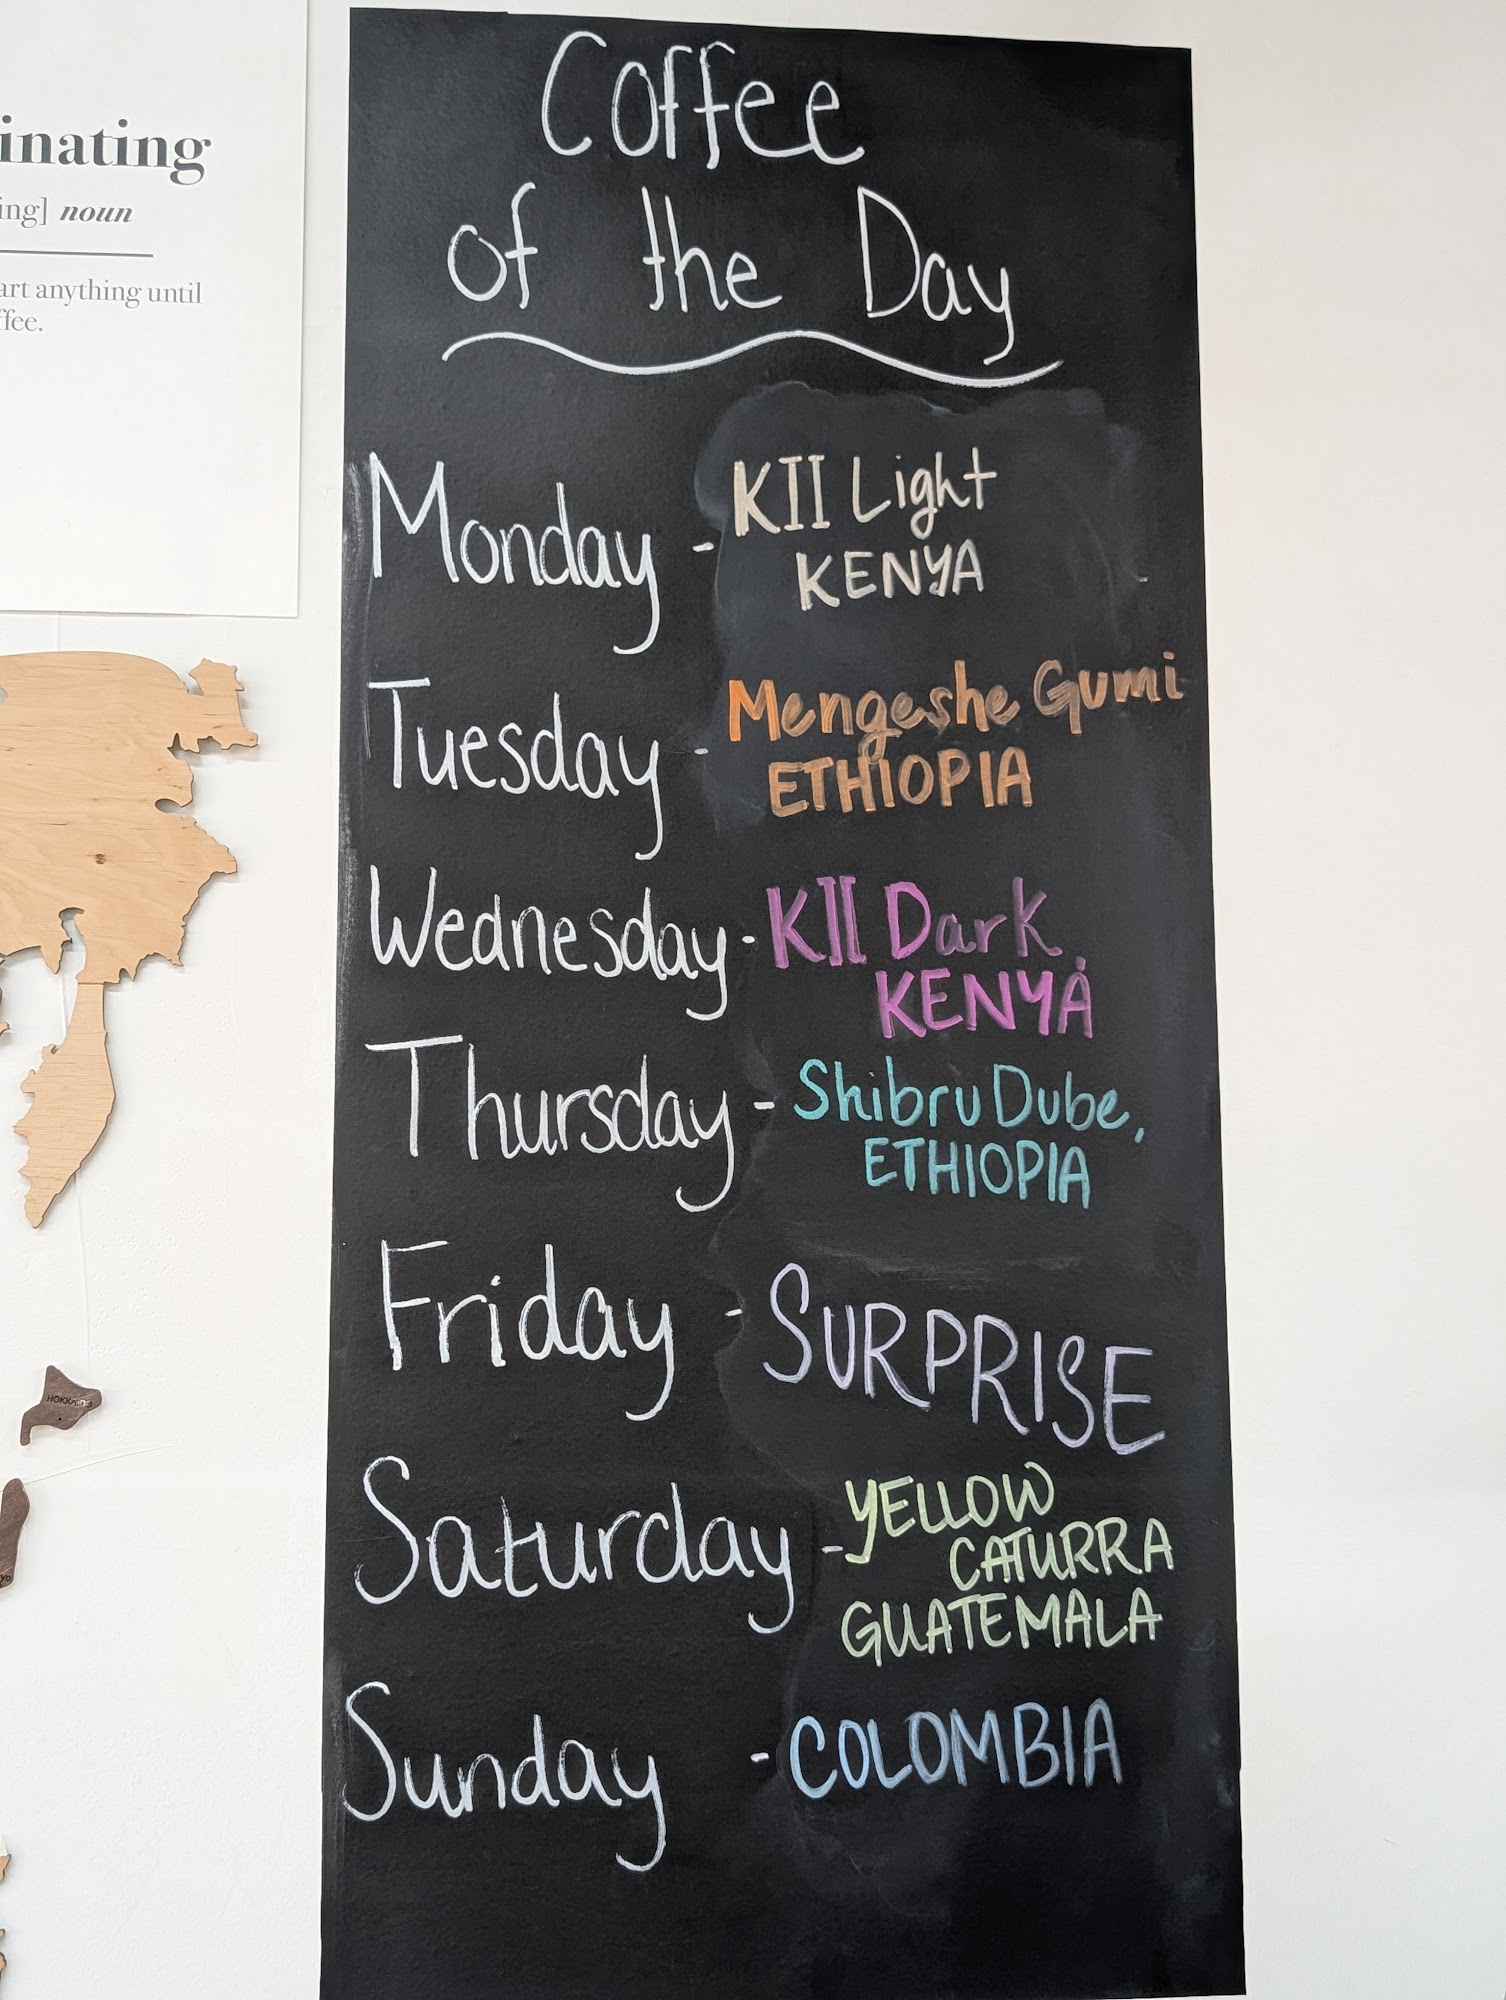 inating
ing] noun
art anything until
ffee.
Coffee
of the Day
Monday - KII Light
KENYA
Tuesday - Mengeshe Gumi
ETHIOPIA
Wednesday - KII Dark,
KENYA
Thursday - Shibru Dube,
ETHIOPIA
Friday - SURPRISE
Saturday - YELLOW
CATURRA
GUATEMALA
Sunday - COLOMBIA
HOKKAIDO